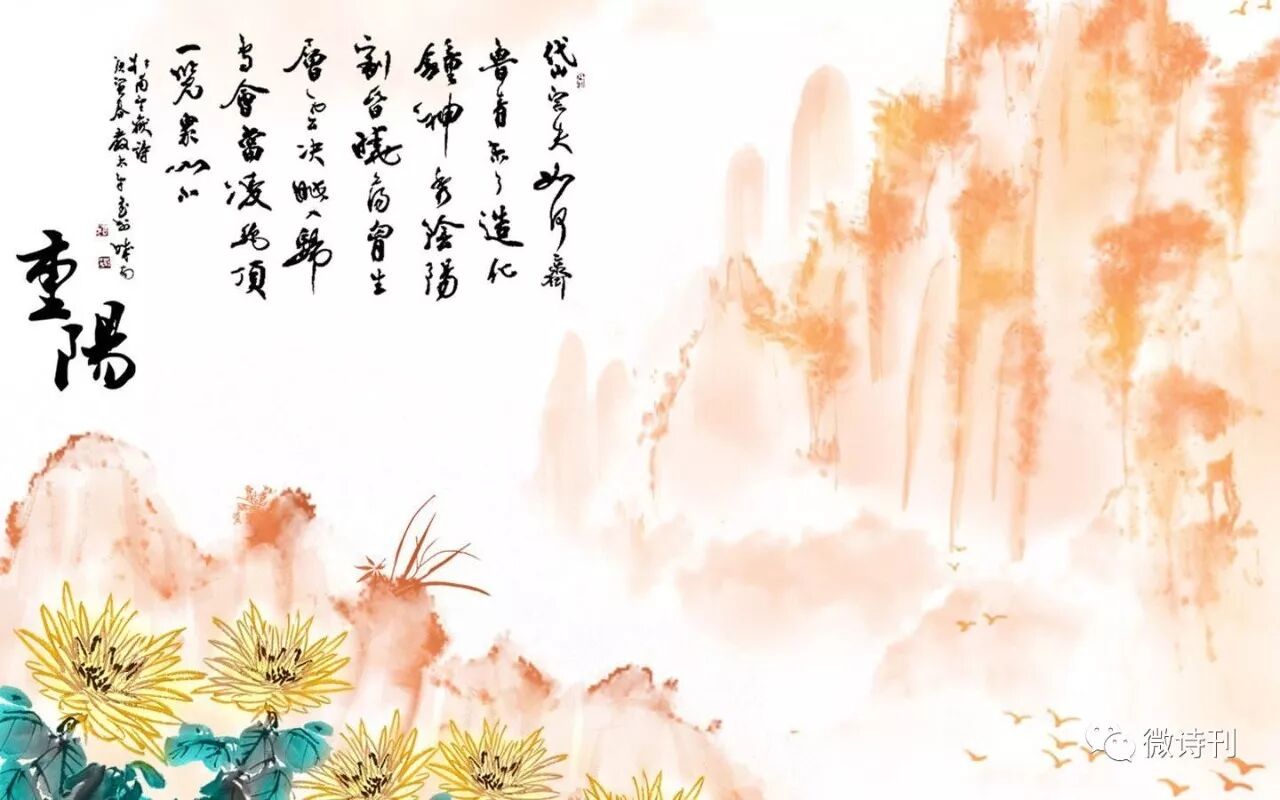 岱宗夫如何齊
魯青未了造化
鍾神秀陰陽
割昏曉蕩胸生
層雲決眥入歸
鳥會當凌絕頂
一覽眾山小
杜甫望嶽詩
庚寅春
重陽
微诗刊